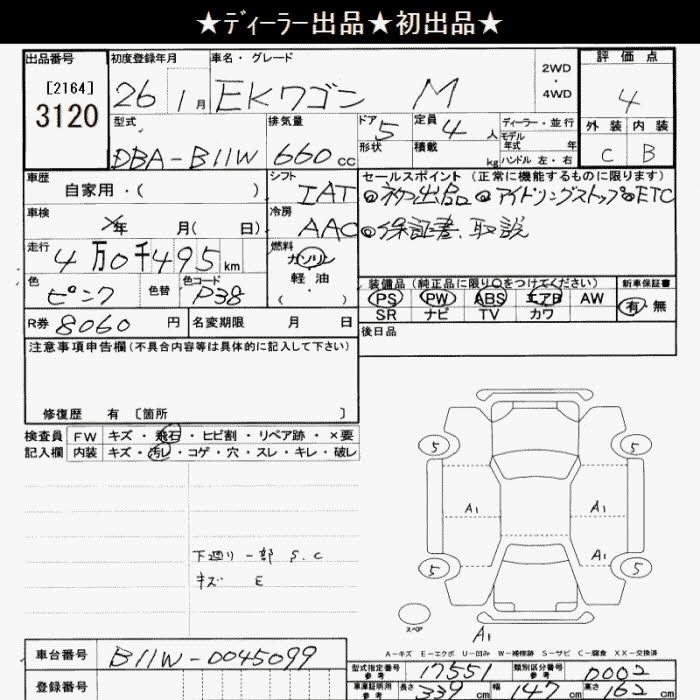 ★ディーラー出品★初出品★
出品番号 初度登録年月 車名・グレード 2WD・4WD 評価点
[2164] 3120 26 1月 EKワゴン M 4
型式 排気量 ドア 5 定員 4人 ディーラー・並行 外装 内装
DBA-B11W 660cc 形状 積載 kg モデル年式 年 ハンドル 左・右 C B
車歴 シフト セールスポイント(正常に機能するものに限ります)
自家用・( ) IAT ◎初出品 ◎アイドリングストップ◎ETC
車検 年 月( 日) 冷房 AAC ◎保証書、取説
走行 4万0千495km 燃料 ガソリン
軽油・( )
色 ピンク 色替 色コード P38 装備品(純正品に限り○をつけてください) 新車保証書
PS PW ABS エアB AW 有・無
R券 8060円 名変期限 月 日 SR ナビ TV カワ
注意事項申告欄(不具合内容等は具体的に記入して下さい) 後日品
修復歴 有 [箇所 ]
検査員 FW キズ・飛石・ヒビ割・リペア跡・×要
記入欄 内装 キズ・汚レ・コゲ・穴・スレ・キレ・破レ
5 5
A1 A1
A1
下廻り 一部 S.C
キズ E
5 5
スペア
A1
A-キズ E-エクボ U-凹み W-補修跡 S-サビ C-腐食 XX-交換済
車台番号 B11W-0045099
型式指定番号 参考 17551 類別区分番号 参考 0002
登録番号 車庫証明用 参考 長さ 339cm 幅 147cm 高さ 162cm